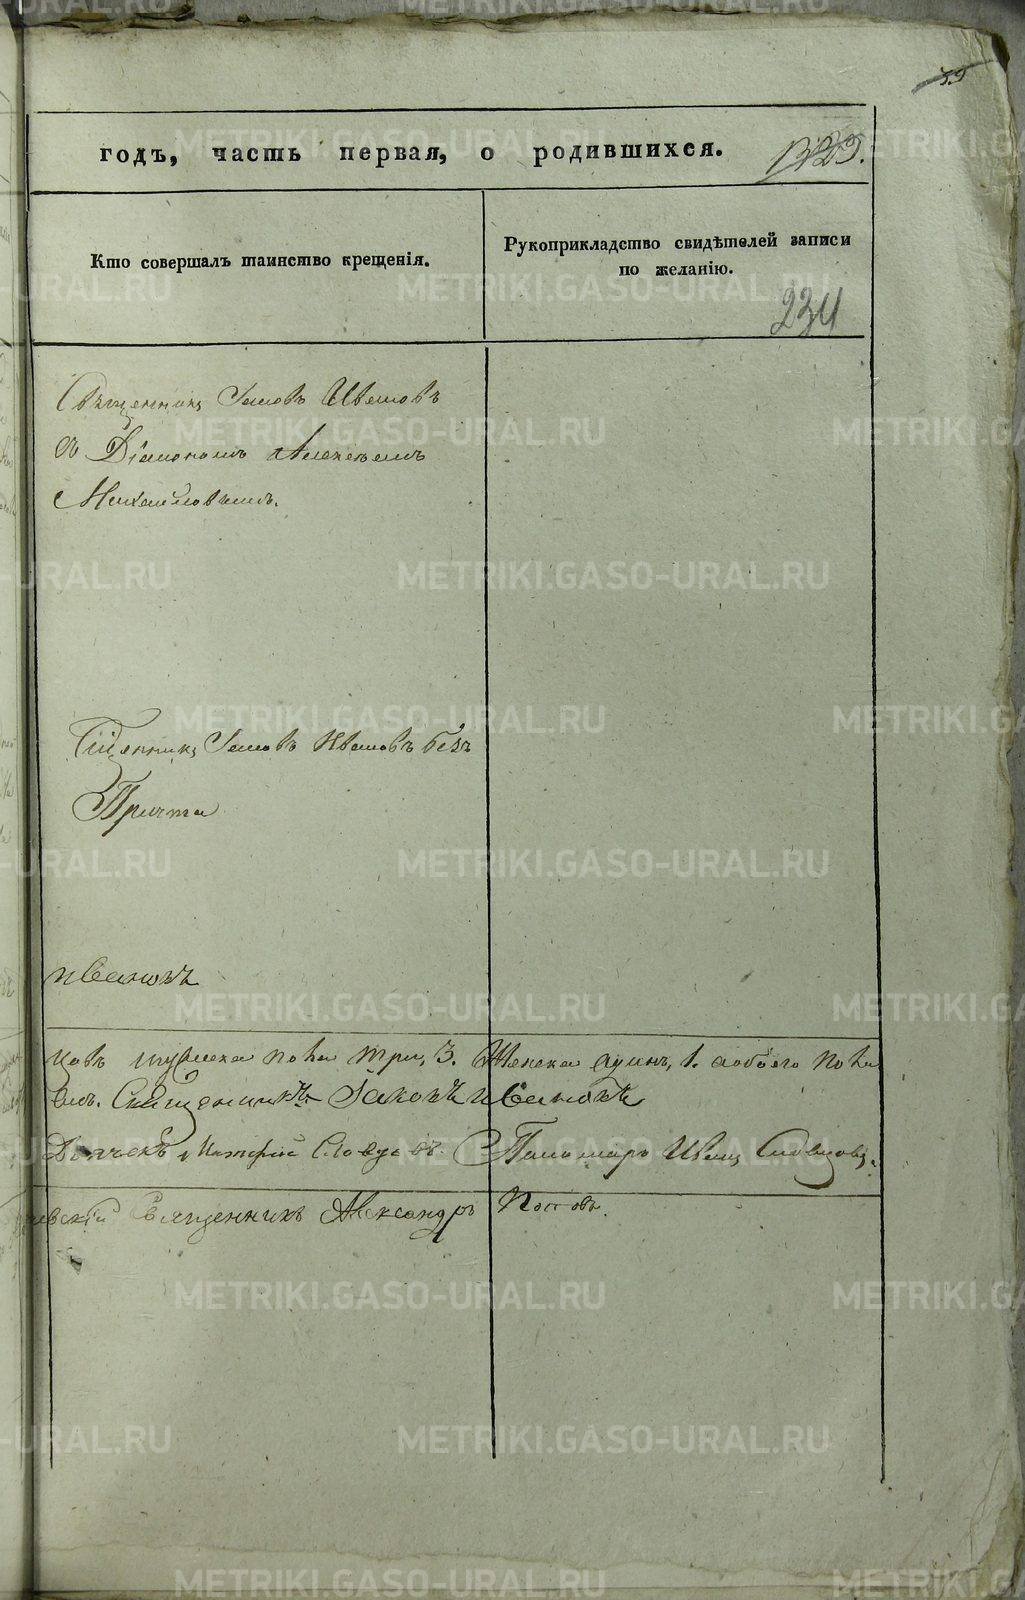 59
годъ, часть первая, о родившихся. 1329.
Кто совершалъ таинство крещенія.
Рукоприкладство свидѣтелей записи
по желанію.
234
Священникъ Іаковъ Ивановъ
съ Діакономъ Алексѣемъ
Михайловымъ.
Священникъ Іаковъ Ивановъ безъ
Причта
Ивановъ
мужеска пола три, 3. Женска одинъ, 1. а обоего пола
Священникъ Іаковъ Ивановъ
Дьячекъ Матфей Словцовъ. Пономарь Иванъ Словцовъ.
Священникъ Александръ Поповъ.
METRIKI.GASO-URAL.RU